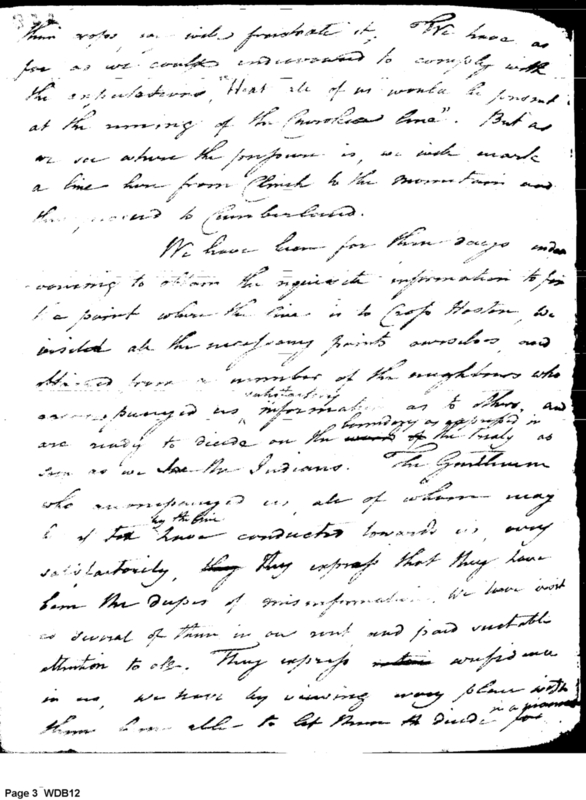 their hopes, we will frustrate it. We have as
far as we could endeavoured to comply with
the expectations, "that all of us would be present
at the runing of the Cherokee line". But as
we see where the pressure is, we will mark
a line here from Clinch to the mountain and
then proceed to Cumberland.
We have been for three days endea
vouring to obtain the requisite information to fix
the point where the line is to Cross Holston, we
visited all the necessary points ourselves, and
obtained from a number of the neighbours who
accompanyed us satisfactory information as to others, and
are ready to decide on the boundary as expressed in the treaty as
soon as we see the Indians. The Gentlemen
who accompanyed us, all of whom may
by the line have conducted towards us, very
satisfactorily, they express that they have
been the dupes of misinformation. We have
as several of them in our tent and paid suitable
attention to all. They express confidence
in us, we have by viewing every place with
them been able to let them decide in a manner for
Page 3 WDB12